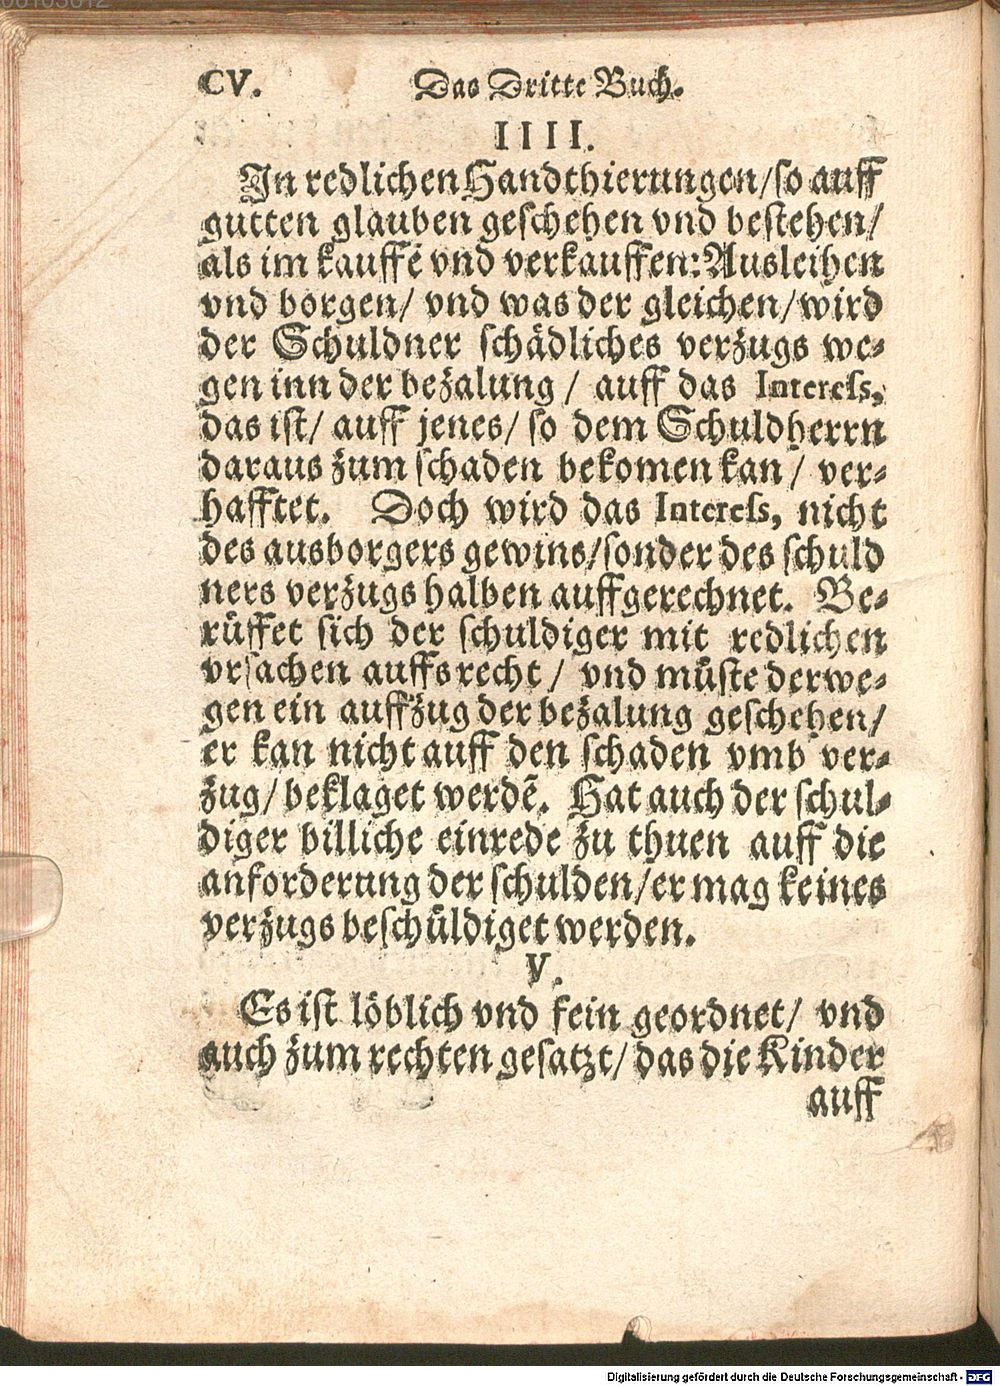 CV. Das Dritte Buch.
IIII.
In redlichen Handthierungen/so auff
gutten glauben geschehen vnd bestehen/
als im kauffẽ vnd verkauffen: Ausleihen
vnd borgen/ vnd was der gleichen/wird
der Schuldner schädliches verzugs we⸗
gen inn der bezalung / auff das Interess,
das ist/ auff jenes/ so dem Schuldherrn
daraus zum schaden bekomen kan / ver⸗
hafftet. Doch wird das Interess, nicht
des ausborgers gewins/sonder des schuld
ners verzugs halben auffgerechnet. Be⸗
rüffet sich der schuldiger mit redlichen
vrsachen auffs recht / vnd müste derwe⸗
gen ein auffzug der bezalung geschehen/
er kan nicht auff den schaden vmb ver⸗
zug/ beklaget werdẽ. Hat auch der schul⸗
diger billiche einrede zu thuen auff die
anforderung der schulden/er mag keines
verzugs beschüldiget werden.
V.
Es ist löblich vnd fein geordnet/ vnd
auch zum rechten gesatzt/ das die Kinder
auff
Digitalisierung gefördert durch die Deutsche Forschungsgemeinschaft - DFG